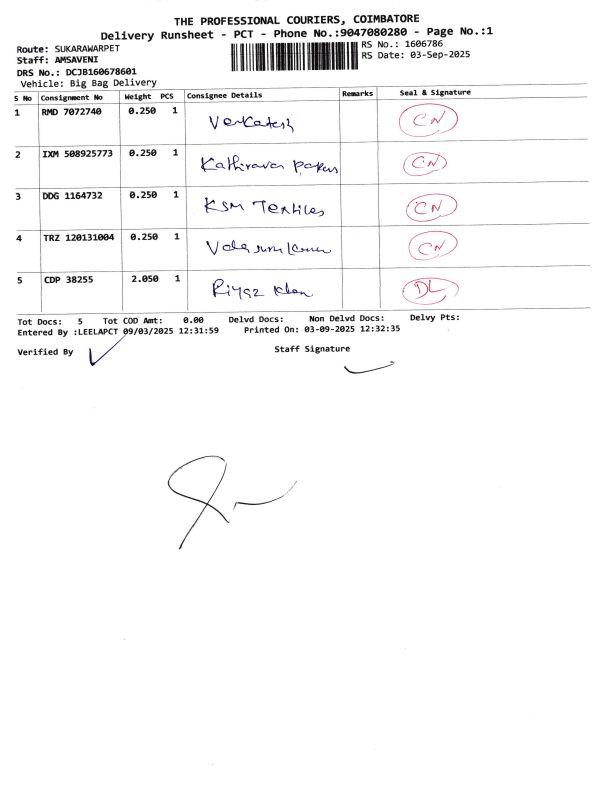 THE PROFESSIONAL COURIERS, COIMBATORE
Delivery Runsheet - PCT - Phone No.:9047080280 - Page No.:1
Route: SUKARAWARPET
RS No.: 1606786
Staff: AMSAVENI
RS Date: 03-Sep-2025
DRS No.: DCJB160678601
Vehicle: Big Bag Delivery
S No Consignment No Weight PCS Consignee Details Remarks Seal & Signature
1 RMD 7072740 0.250 1 Venkatesh CN
2 IXM 508925773 0.250 1 Kathiravan CN
3 DDG 1164732 0.250 1 KSM Textiles CN
4 TRZ 120131004 0.250 1 CN
5 CDP 38255 2.050 1 Riyaz Khan DL
Tot Docs: 5 Tot COD Amt: 0.00 Delvd Docs: Non Delvd Docs: Delvy Pts:
Entered By :LEELAPCT 09/03/2025 12:31:59 Printed On: 03-09-2025 12:32:35
Verified By Staff Signature